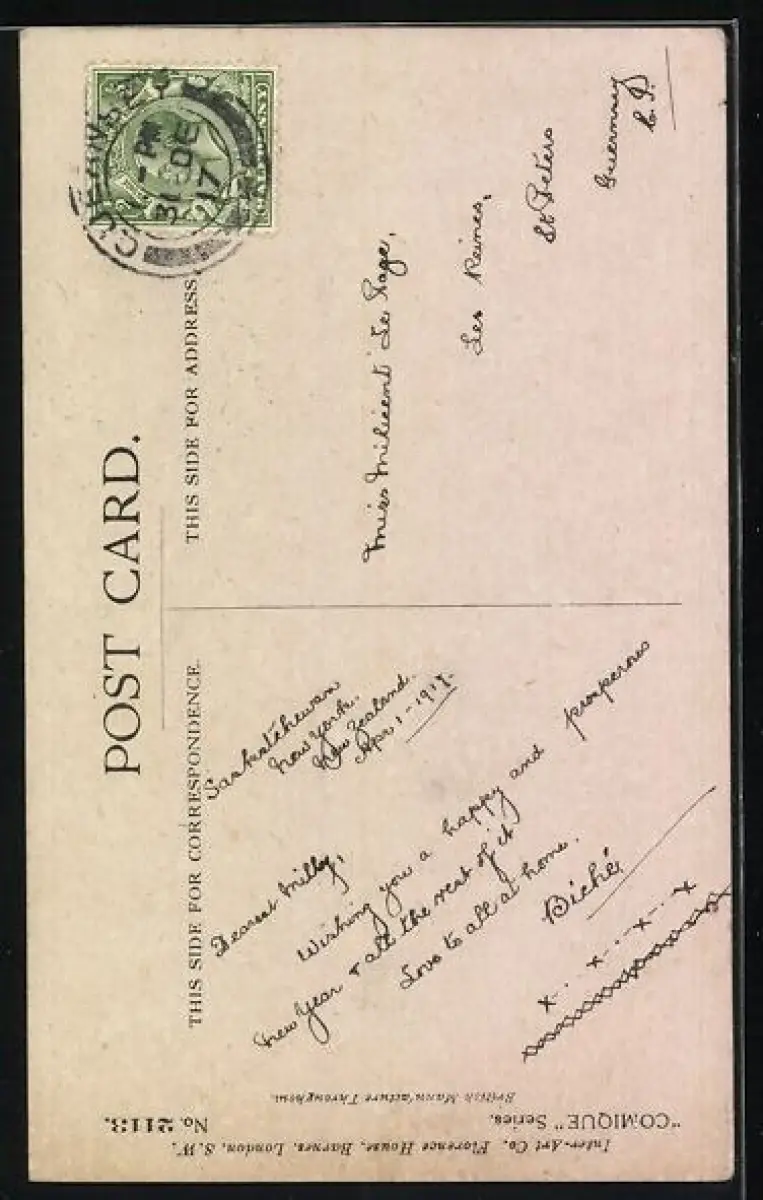 POST CARD.
THIS SIDE FOR CORRESPONDENCE.
THIS SIDE FOR ADDRESS
Saskatchewan
New York.
New Zealand.
Apr 1 - 1917.
Dearest Milly,
Wishing you a happy and prosperous
New Year & all the rest of it
Love to all at home.
Biché
x . . x . . x . . x
xxxxxxxxxxxxxxxxxxxx
Miss Milicent Le Page,
Les Reines,
St Peters
Guernsey
C.I.
GUERNSEY
1 - PM
31 DE
17
"COMIQUE" Series.
No. 2113.
Inter-Art Co., Florence House, Barnes, London, S.W.
British Manufacture Throughout.